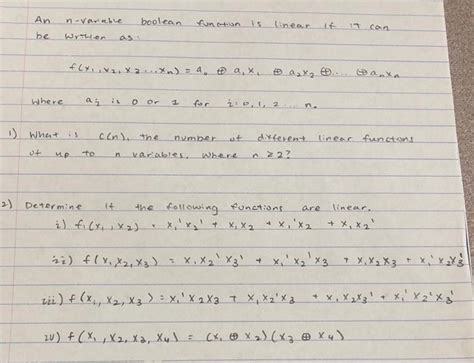 An n-variable boolean function is linear if it can
be written as:
f(x₁,x₂,x₂...xₙ) = a₀ ⊕ a₁x₁ ⊕ a₂x₂ ⊕... ⊕ aₙxₙ
where aᵢ is 0 or 1 for i=0,1,2 ... n.
1) What is c(n), the number of different linear functions
of up to n variables, where n ≥2?
2) Determine if the following functions are linear.
i) f₁(x₁,x₂) = x₁'x₂' + x₁x₂ + x₁'x₂ + x₁x₂'
ii) f(x₁x₂,x₃) = x₁x₂'x₃' + x₁'x₂'x₃ + x₁x₂x₃ + x₁'x₂x₃'
iii) f(x₁,x₂,x₃) = x₁'x₂x₃ + x₁x₂'x₃ + x₁x₂x₃' + x₁'x₂'x₃'
iv) f(x₁,x₂,x₃,x₄) = (x₁ ⊕ x₂)(x₃ ⊕ x₄)